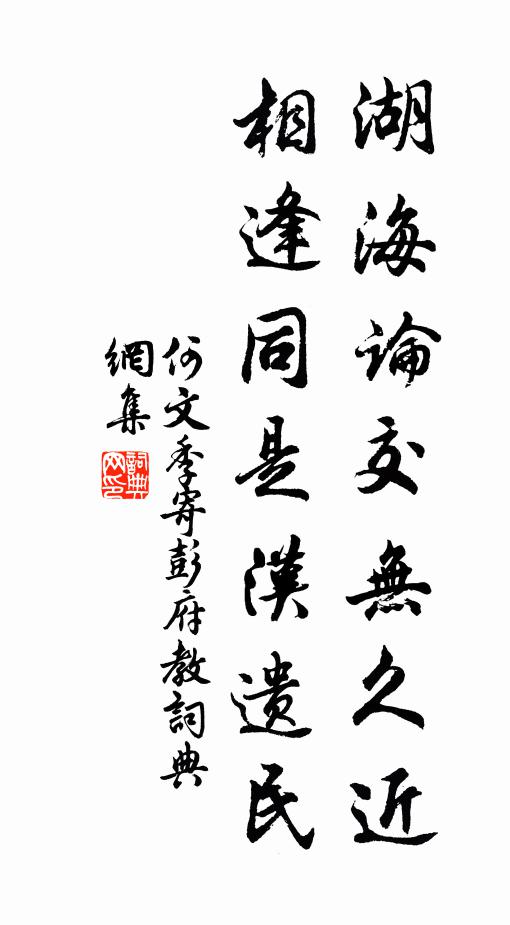 湖海論交無久近
相逢同是漢遺民
何文季寄彭府教詞典
網集
詞典
网印